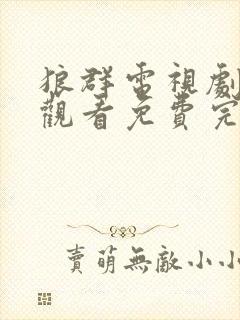 狼群電視劇
觀看免費完
賣萌無敵小小